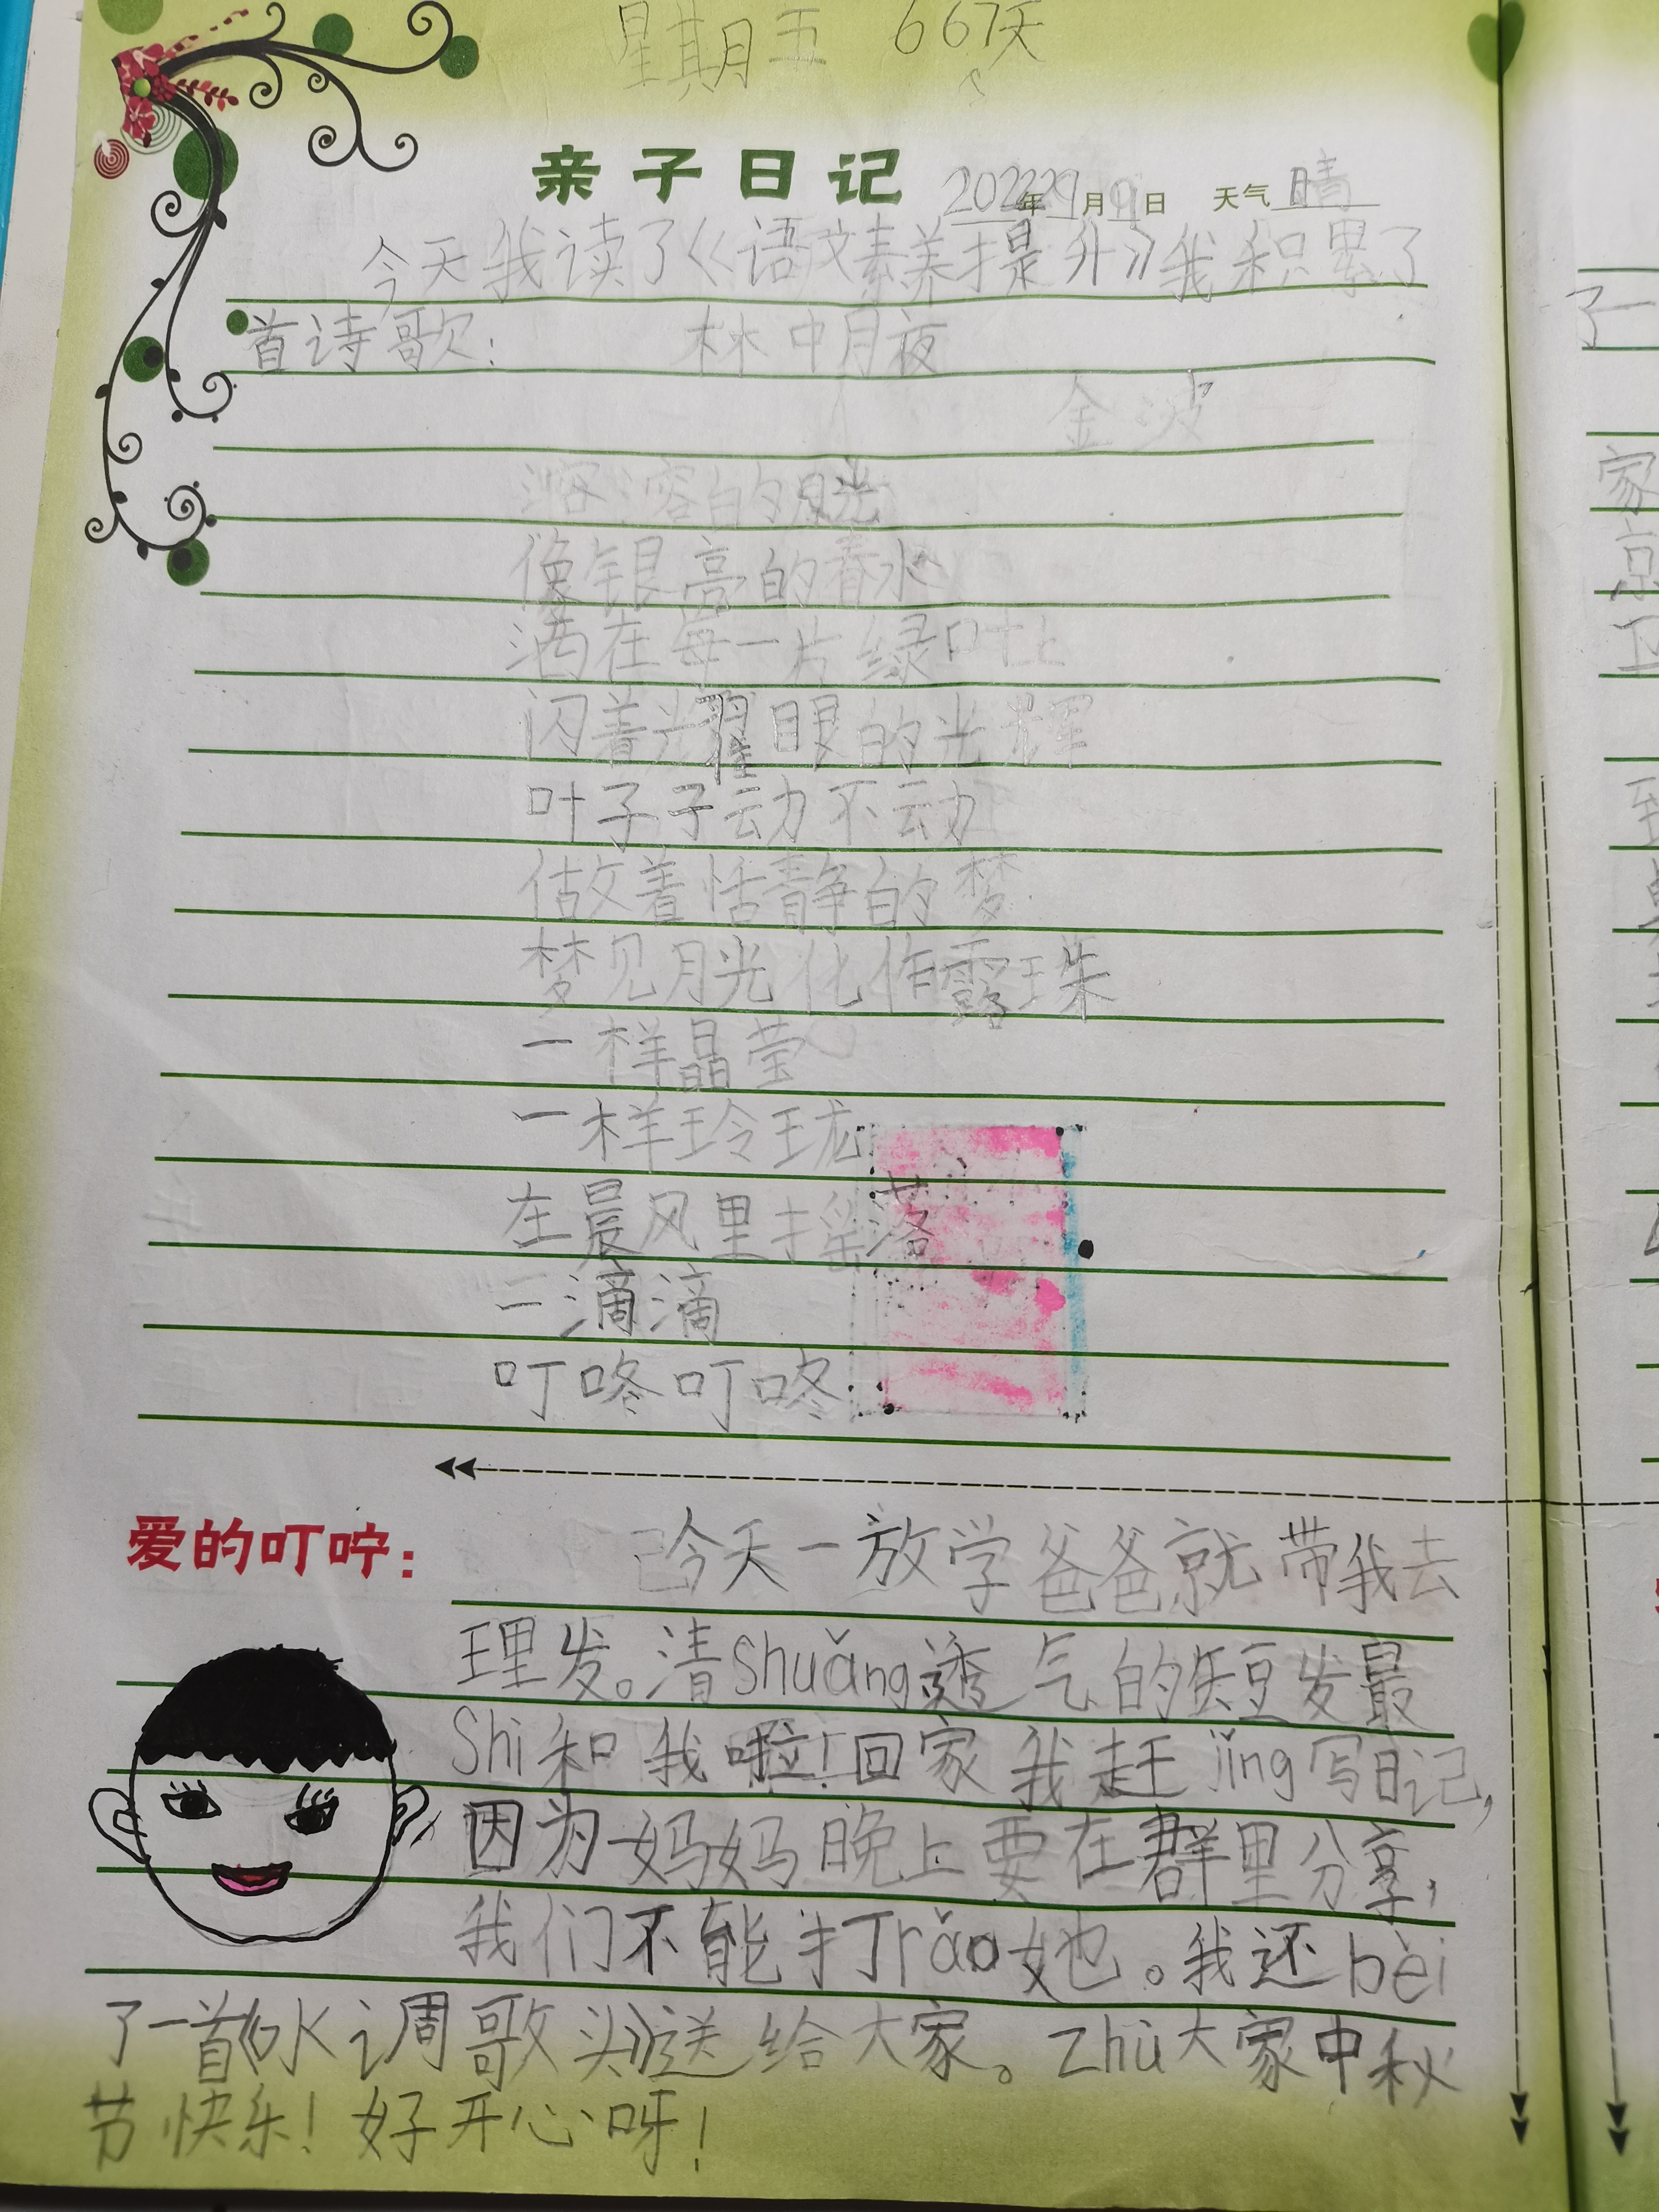 星期五 667天
亲子日记 2022年9月9日 天气 晴
今天我读了《语文素养提升》我积累了
首诗歌： 林中月夜
金波
溶溶的月光
像银亮的春水
洒在每一片绿叶上
闪着光耀眼的光辉
叶子子动不动
做着恬静的梦
梦见月光化作露珠
一样晶莹
一样玲珑
在晨风里摇落
一滴滴
叮咚叮咚
爱的叮咛：
今天一放学爸爸就带我去
理发。清Shuǎng透气的短发最
Shi和我啦！回家我赶jǐng写日记，
因为妈妈晚上要在群里分享，
我们不能打rǎo她。我还bèi
了一首《水调歌头》送给大家。Zhù大家中秋
节快乐！好开心呀！
了一
家
京
卫
到